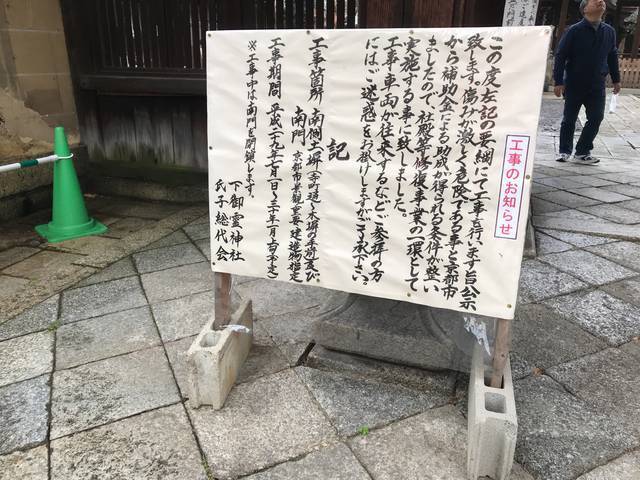 工事のお知らせ
この度左記の要綱にて工事を行います旨公示
致します。傷みが激しく危険である事と京都市
から補助金による助成が得られる条件が整い
ましたので、社殿等修復事業の一環として
実施する事に致しました。
工事車両が往来するなどご参拝の方
にはご迷惑をお掛けしますがご了承下さい。
記
工事箇所 南側土塀(寺町通り
南門 京都市景観重要建造物指定
工事期間 平成二九年
※工事中は南門を閉鎖します。
下御霊神社
氏子総代会